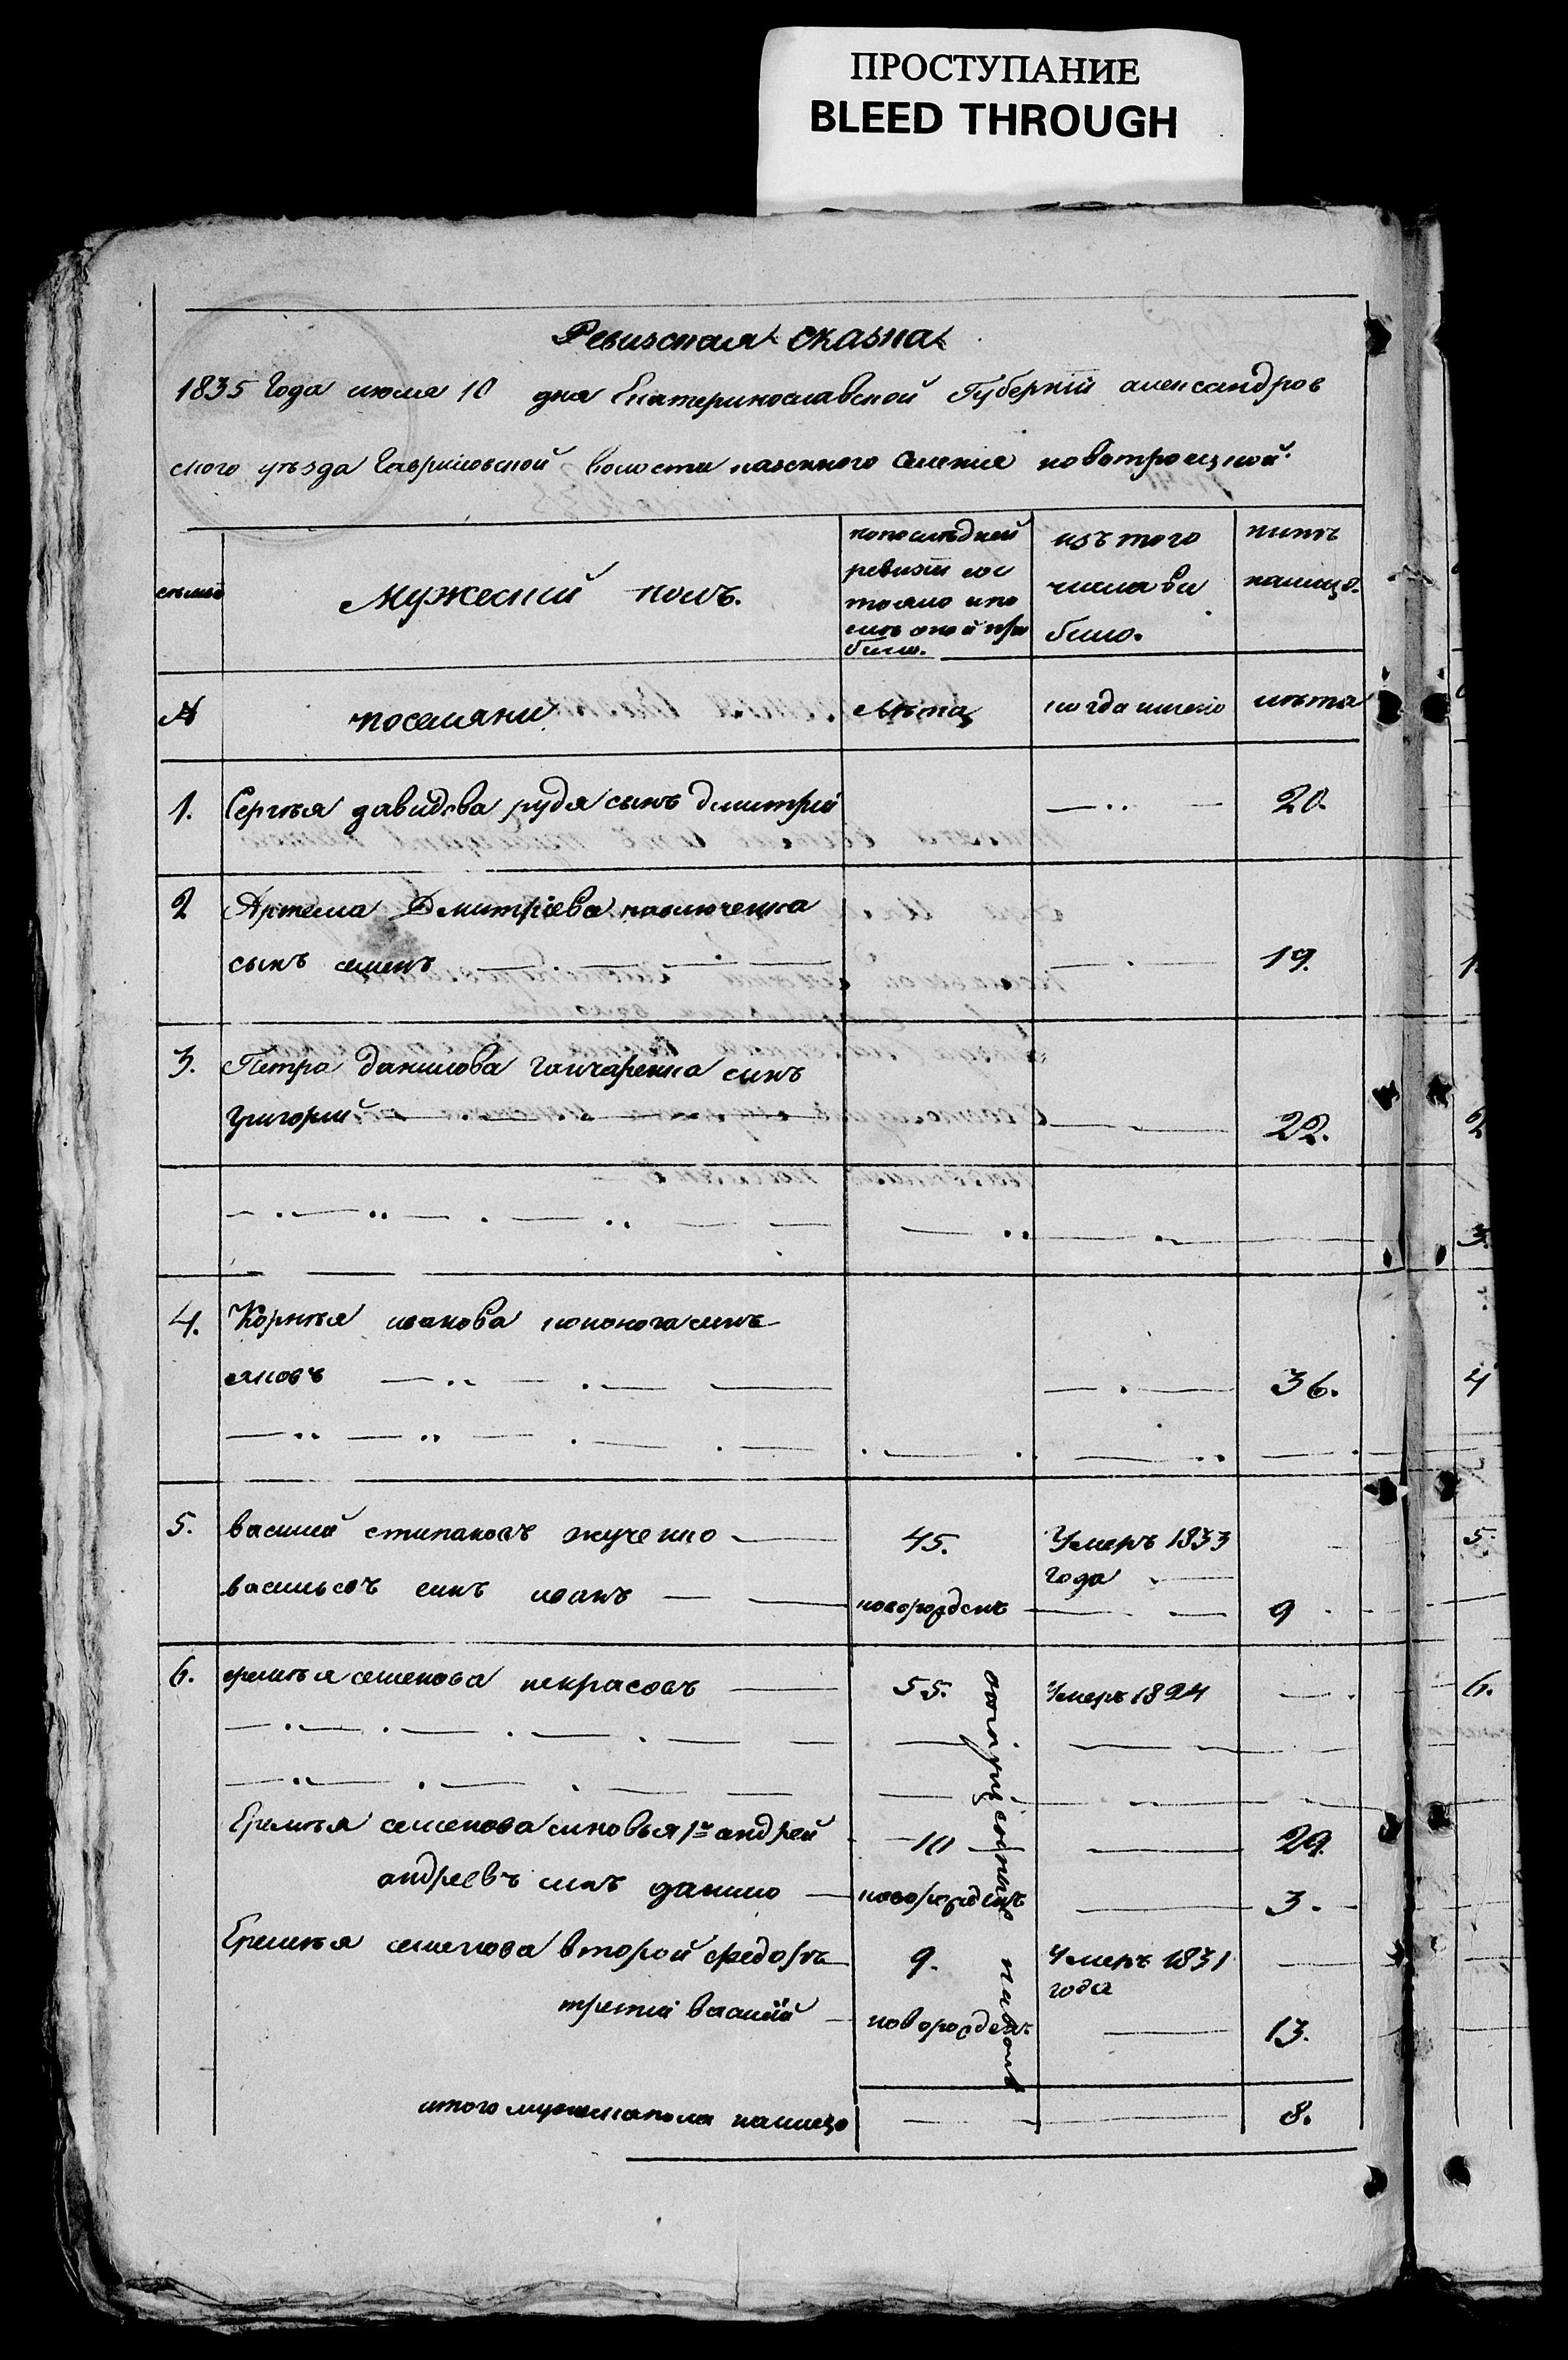 ПРОСТУПАНИЕ
BLEED THROUGH
Ревизская сказка
1835 Года июля 10 дня Екатеринославской Губернїи александров
ского уѣзда Гавриловской волости казенного Селения новотроецкой
семьи
мужеский полъ.
попослѣдней
ревизїи сос
тояло ипо
слѣ оной при
било.
изъ того
числа ви
било.
нинѣ
налицо.
№
поселяни
лѣта
когда имено
лѣта
1. Сергѣя давидова рудя сынъ дмитрий 20.
2 Артема Дмитрїева павлюченка
сынъ семенъ 19.
3. Петра данилова гончаренка синъ
григорий 22.
4. Корнѣя иванова синъ
яковъ 36.
5. василий стипановъ жученко 45. Умеръ 1833
года
васильевъ синъ иванъ новорожденъ 9
6. еремѣя семенова некрасовъ 55. Умеръ 1824
Еремѣя семенова синовья 1й андрей 10 29.
андреевъ синъ данило новорожденъ 3.
Еремѣя семенова второй федоръ 9. Умеръ 1831
года
третий василий новорожденъ 13.
итого мужеска пола налицо 8.
1
2
3.
4
5.
6.